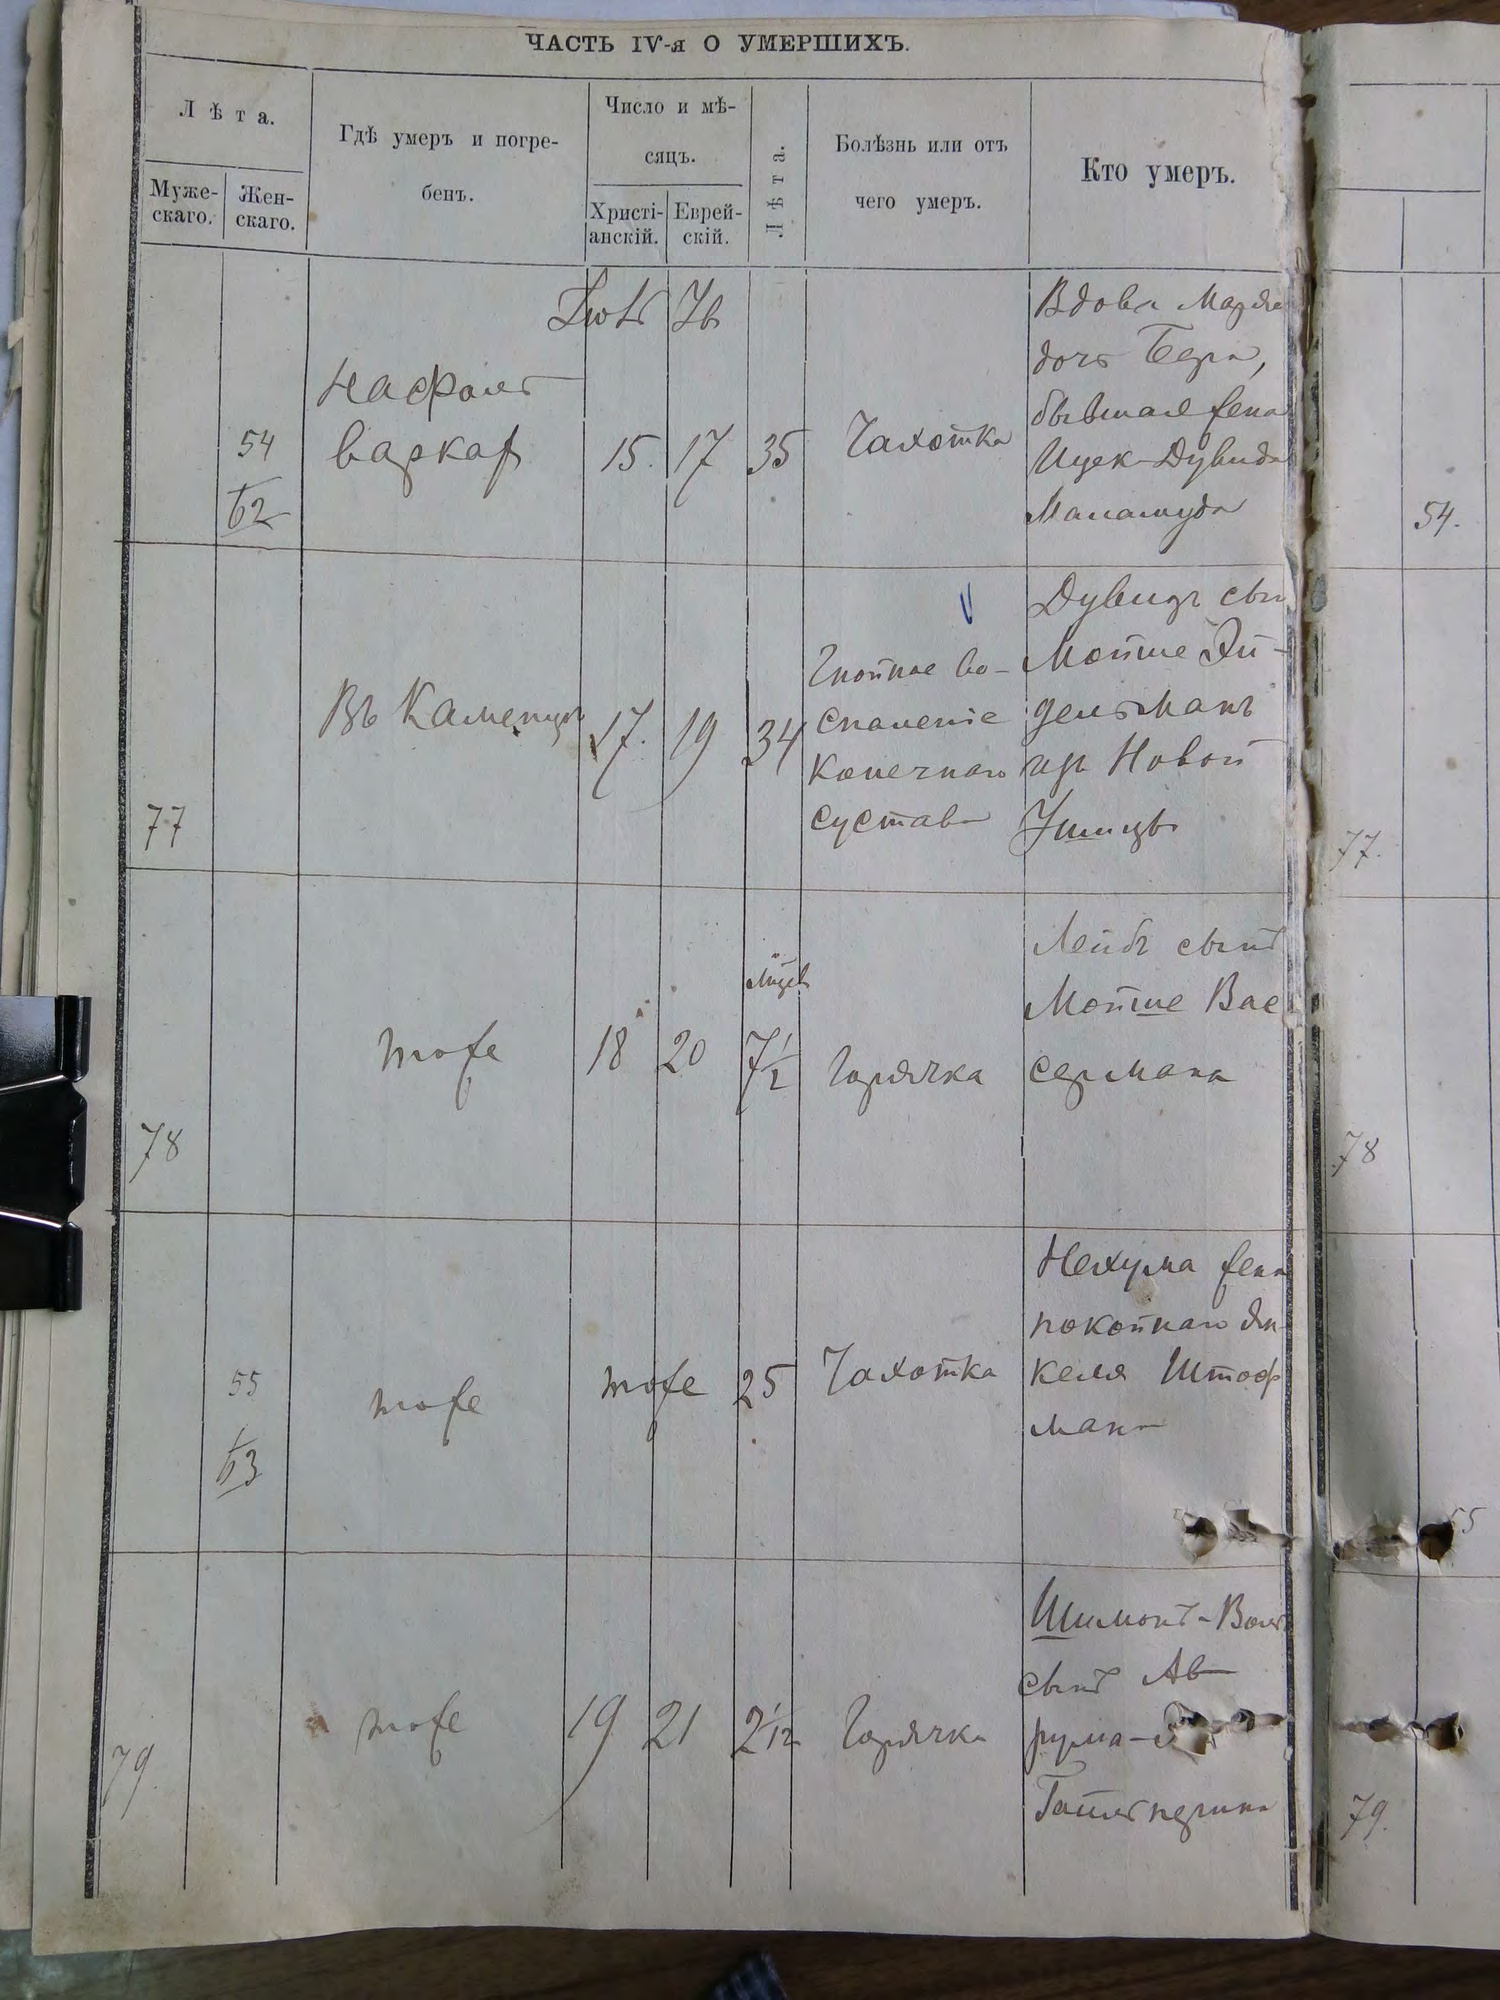 ЧАСТЬ IV-я О УМЕРШИХЪ.
Лѣта.
Муже-
скаго.
Жен-
скаго.
Гдѣ умеръ и погре-
бенъ.
Число и мѣ-
сяцъ.
Христі-
анскій.
Еврей-
скій.
Лѣта.
Болѣзнь или отъ
чего умеръ.
Кто умеръ.
54
62
на фоль
варках
15. 17 35
Чахотка
Вдова
дочь Бера,
бывшая жена
Ицек-Дувида
54.
77
Въ Каменцѣ
17. 19 34
Гнойное во-
спаленіе
конечнаго
сустава
Дувидъ сын
Мойше Эй-
дельманъ
изъ Новой
Ушицы
77.
78
тоже
18 20
7 1/2
Горячка
Лейбъ сынъ
Мойше Вас
сермана
78
55
63
тоже
тоже 25
Чахотка
Нехума жена
покойнаго Ян-
келя Штоф
мана
55
79.
тоже
19 21 2 1/12
Горячка
Шимонъ-Вольф
сынъ Ав
рума-
79.